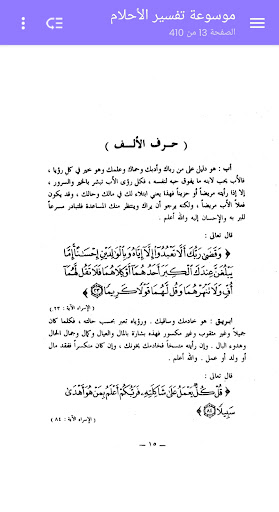 موسوعة تفسير الأحلام
الصفحة 13 من 410
( حرف الألــف )
أب : هو دليل على من رباك وأدبك وحماك وعلمك وهو خير في كل رؤيا ،
فالأب يحب لابنه ما يفوق حبه لنفسه ، فكل رؤى الأب تبشر بالخير والسرور ،
إلا إذا رأيته مريضاً أو حزيناً فهذا يعني ابتلاء لك في مالك وحالك ، وقد يكون
فعلاً الأب مريضاً ، ولكنه يرجو أن يراك وينتظر منك المساعدة فلتبادر مسرعاً
للبر به والإحسان إليه والله أعلم .
قال تعالى :
﴿ وَقَضَىٰ رَبُّكَ أَلَّا تَعْبُدُوٓا۟ إِلَّآ إِيَّاهُ وَبِٱلْوَٰلِدَيْنِ إِحْسَٰنًا إِمَّا
يَبْلُغَنَّ عِندَكَ ٱلْكِبَرَ أَحَدُهُمَآ أَوْ كِلَاهُمَا فَلَا تَقُل لَّهُمَآ
أُفٍّ وَلَا تَنْهَرْهُمَا وَقُل لَّهُمَا قَوْلًا كَرِيمًا ﴿٢٣﴾ ﴾
( الإسراء الآية : ٢٣ )
ابريــق : هو خادمك وساقيك . ورؤياه تعبر بحسب حالته ، فكلما كان
جميلاً وغير مثقوب وغير مكسور فهذه بشارة بالمال والعيال وكمال وجمال الحال
وهدوء البال . وإن رأيته متسخاً فخادمك يخونك ، وإن كان منكسراً ففقد مال
أو ولد أو عمل . والله أعلم .
قال تعالى :
﴿ قُلْ كُلٌّ يَعْمَلُ عَلَىٰ شَاكِلَتِهِۦ فَرَبُّكُمْ أَعْلَمُ بِمَنْ هُوَ أَهْدَىٰ
سَبِيلًا ﴿٨٤﴾ ﴾
( الإسراء الآية : ٨٤ )
— ١٥ —